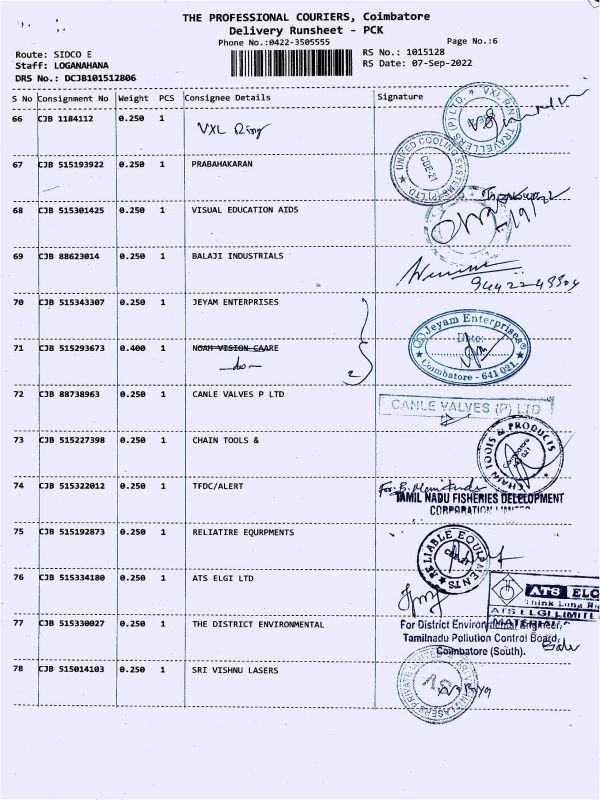 THE PROFESSIONAL COURIERS, Coimbatore
Delivery Runsheet - PCK
Phone No.:0422-3505555
Page No.:6
Route: SIDCO E
RS No.: 1015128
Staff: LOGANAHANA
RS Date: 07-Sep-2022
DRS No.: DCJB101512806
S No Consignment No Weight PCS Consignee Details Signature
66 CJB 1184112 0.250 1 VXL Ring
67 CJB 515193922 0.250 1 PRABAHAKARAN
UNITED COOLING SYSTEMS (P) LTD.
68 CJB 515301425 0.250 1 VISUAL EDUCATION AIDS
69 CJB 88623014 0.250 1 BALAJI INDUSTRIALS
70 CJB 515343307 0.250 1 JEYAM ENTERPRISES
Jeyam Enterprises
Date:
Coimbatore - 641 021.
71 CJB 515293673 0.400 1 NOAH VISION CAARE
2
72 CJB 88738963 0.250 1 CANLE VALVES P LTD
CANLE VALVES (P) LTD
73 CJB 515227398 0.250 1 CHAIN TOOLS &
CHAIN TOOLS & PRODUCTS
74 CJB 515322012 0.250 1 TFDC/ALERT
TAMIL NADU FISHERIES DELELOPMENT
CORPORATION LIMITED
75 CJB 515192873 0.250 1 RELIATIRE EQURPMENTS
RELIABLE EQUIPMENTS
76 CJB 515334180 0.250 1 ATS ELGI LTD
ATS ELG
Think Long R
ATS ELGI LIMITE
MATERIAL
77 CJB 515330027 0.250 1 THE DISTRICT ENVIRONMENTAL
For District Environmental Engineer,
Tamilnadu Pollution Control Board,
Coimbatore (South).
78 CJB 515014103 0.250 1 SRI VISHNU LASERS